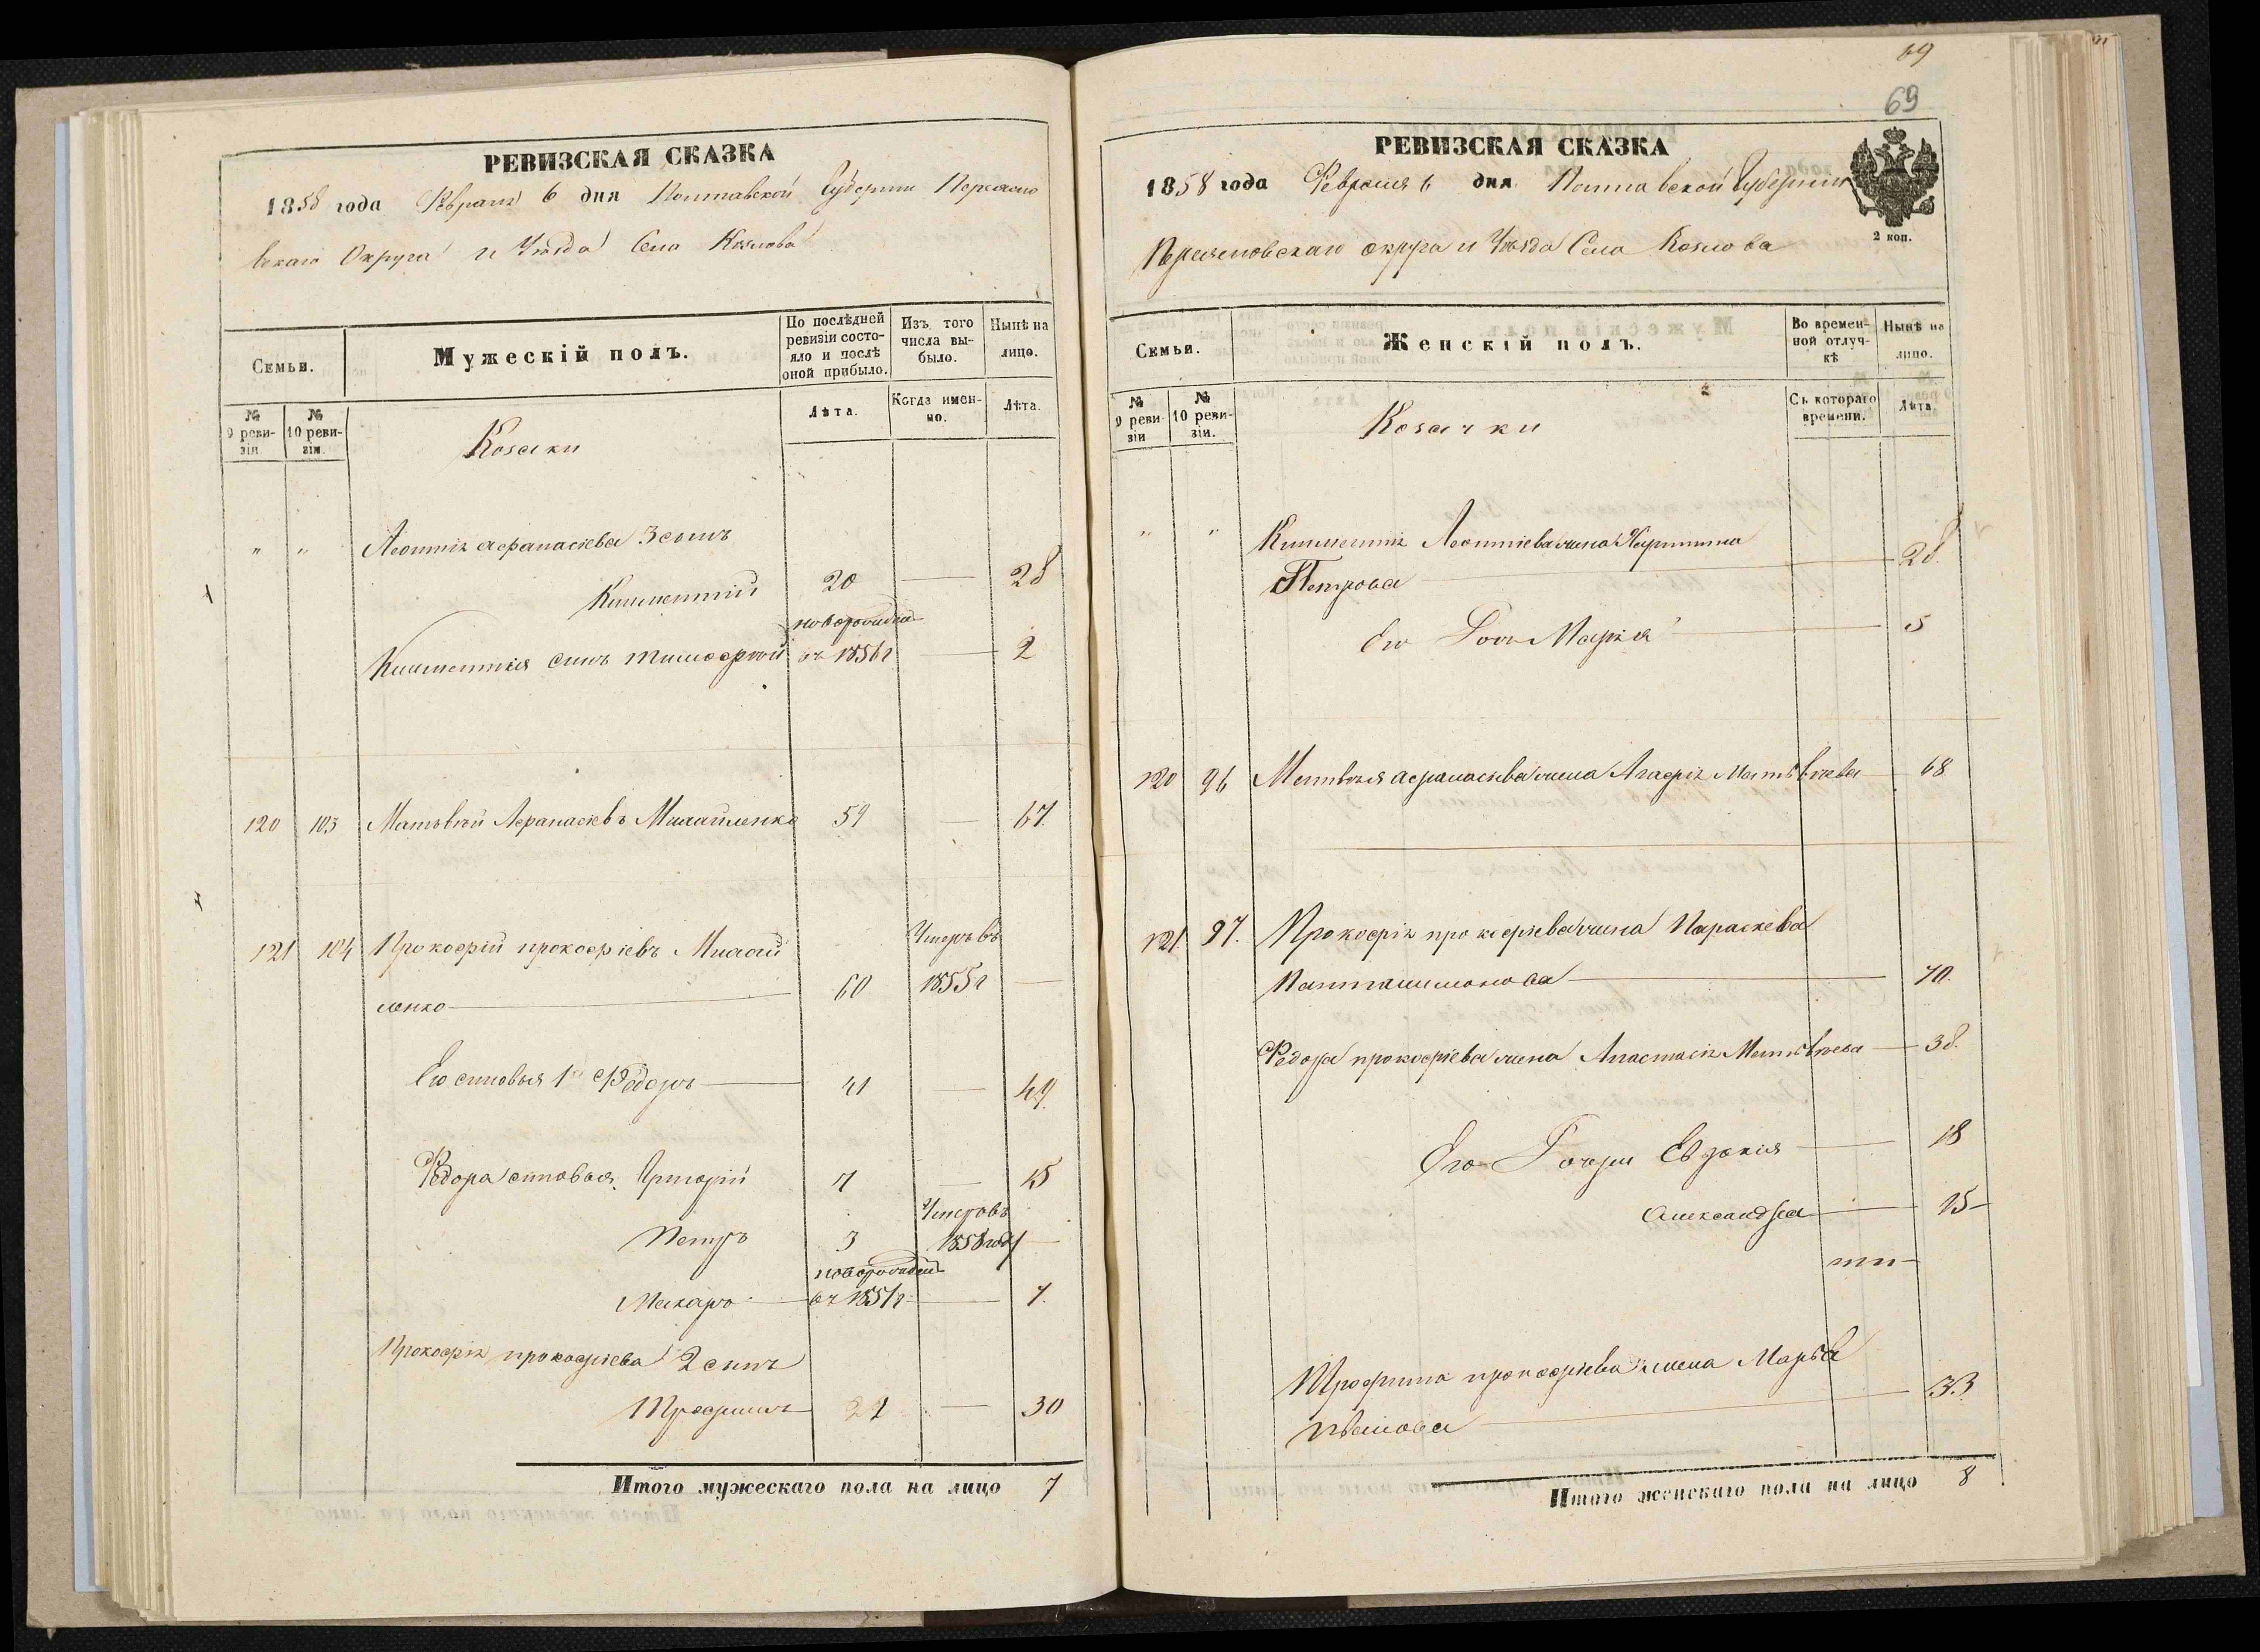 РЕВИЗСКАЯ СКАЗКА
1858 года Февраля 6 дня Полтавской Губернии Переясло
вскаго Округа и Уѣзда Села Козлова
Семьи.
Мужескій полъ.
По послѣдней ревизіи состояло и послѣ оной прибыло.
Изъ того числа выбыло.
Нынѣ на лицо.
№ 9 ревизіи
№ 10 ревизіи.
Козаки
Лѣта.
Когда именно.
Лѣта.
" " Леонтія Афанасіева 3 сынъ
Климентий 20 — 28
новорожден
Климентия сынъ Тимофѣй въ 1856 г — 2
120 103 Матвѣй Афанасіевъ 59 — 67.
121 104 Прокофій Прокофіевъ Умеръ въ
ленко — 60 1855 г —
Его сыновья 1й Фёдоръ — 41 — 49.
Фёдора сыновья Григорій 7 — 15
Умеръ въ
Петръ 3 1853 году —
новорожден
Макаръ — въ 1851 г — 7.
Прокофія Прокофіева 2 сынъ
Трофимъ 22 — 30
Итого мужескаго пола на лицо 7
69
69
РЕВИЗСКАЯ СКАЗКА
1858 года Февраля 6 дня Полтавской Губернии
Переясловскаго округа и Уѣзда Села Козлова
2 коп.
Семьи.
Женскій полъ.
Во временной отлучкѣ
Нынѣ на лицо.
№ 9 ревизіи
№ 10 ревизіи.
Козачки
Съ котораго времени.
Лѣта
" " Климентія Леонтіева жена
Петрова — 28.
Его Дочь Марія — 5
120 96 Матвѣя Афанасіева жена Агафія Матвѣева 68.
121. 97. Прокофія Прокофіева жена Параскева
Пантилимонова — 70.
Фёдора Прокофіева жена Анастасія Матвѣева — 38.
Его Дочери Евдокія — 18
Александра — 15
Трофима Прокофіева жена Марѳа
Иванова — 33.
Итого женскаго пола на лицо 8